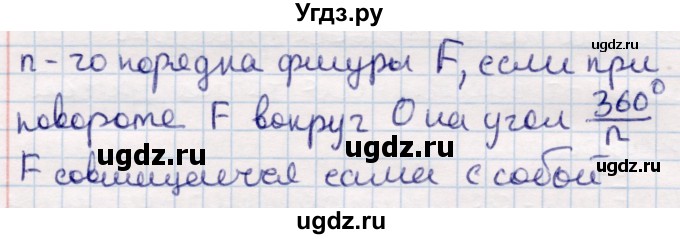 Угдз.ру
n-го порядка фигуры F, если при
повороте F вокруг O на угол 360°/n
F совмещается сама с собой
ugdz.ru
ugdz.ru
ugdz.ru
ugdz.ru
ugdz.ru
ugdz.ru